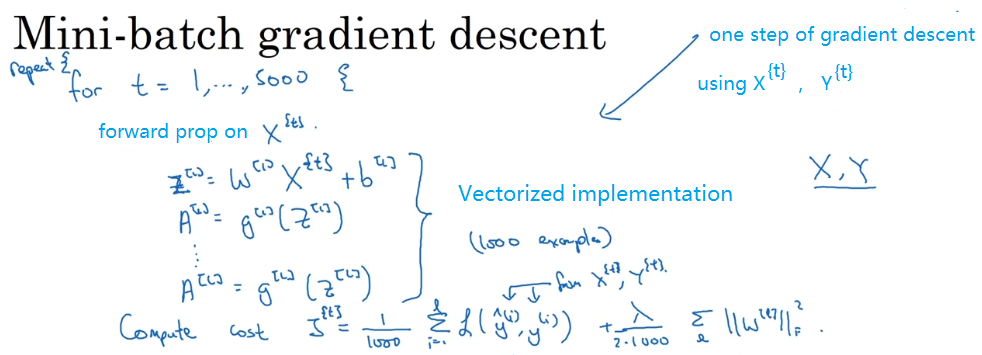 Mini-batch gradient descent
one step of gradient descent
using X^{t} , Y^{t}
repeat {
for t = 1, ..., 5000 {
forward prop on X^{t}.
Z^[1] = W^[1] X^{t} + b^[1]
A^[1] = g^[1](Z^[1])
⋮
A^[L] = g^[L](Z^[L])
Vectorized implementation
(1000 examples)
X, Y
from X^{t}, Y^{t}.
Compute cost J^{t} = 1/1000 Σ_{i=1}^{l} L(ŷ^(i), y^(i)) + λ/(2·1000) Σ_l ||W^[l]||_F^2.